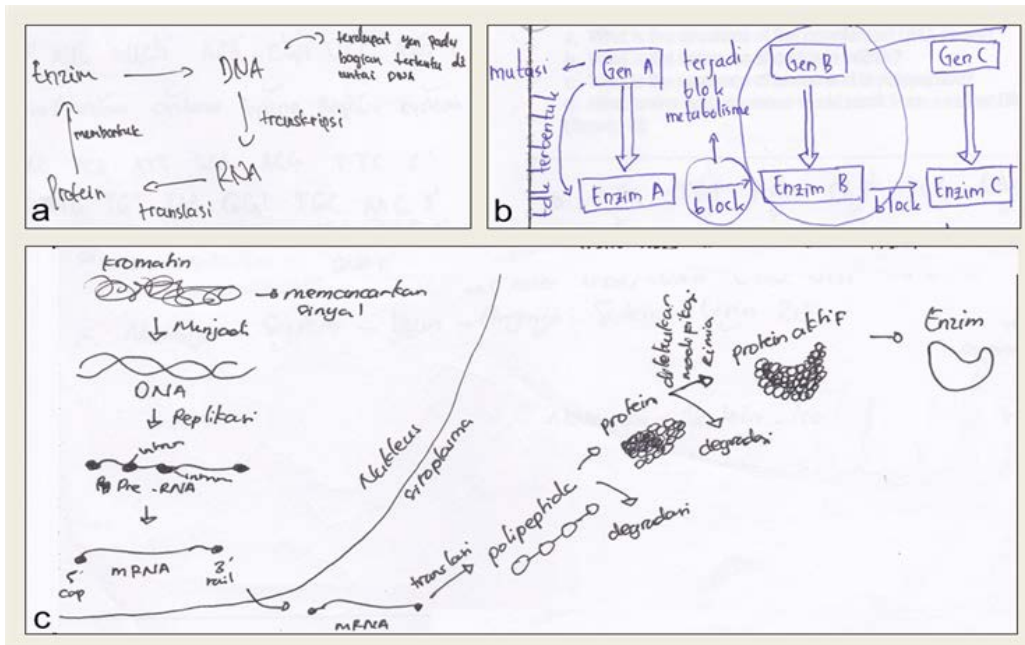 Enzim
DNA
terdapat gen pada
bagian tertentu di
untai DNA
transkripsi
RNA
translasi
Protein
membentuk
a
mutasi
Gen A
terjadi
blok
metabolisme
Gen B
Gen C
tak terbentuk
Enzim A
block
Enzim B
block
Enzim C
b
kromatin
memancarkan
sinyal
Menjadi
DNA
Replikasi
intron
Pre-RNA
mRNA
5'
cap
3'
tail
Nukleus
sitoplasma
mRNA
translasi
polipeptida
degradasi
protein
degradasi
dilakukan
modifikasi
kimia
protein aktif
Enzim
c